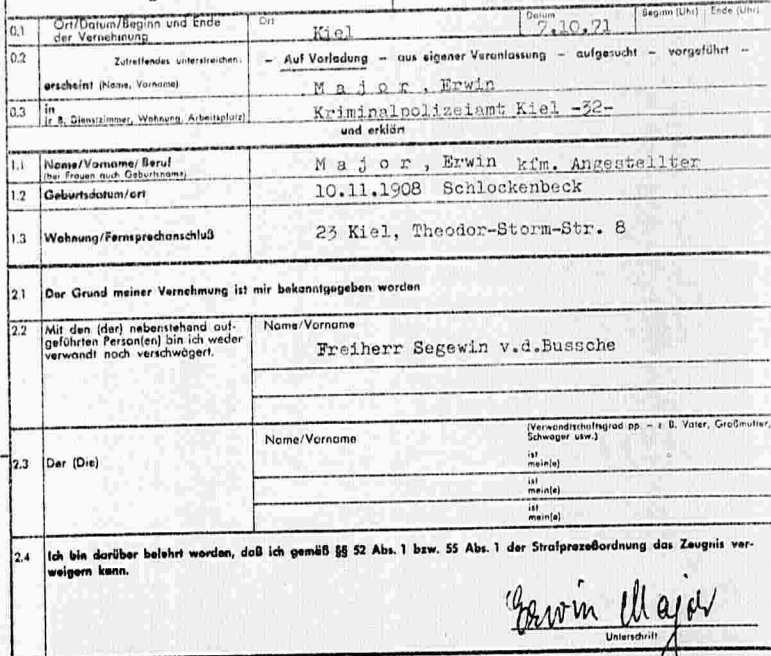 0.1 Ort/Datum/Beginn und Ende der Vernehmung
Ort
Kiel
Datum
7.10.71
Beginn (Uhr)
Ende (Uhr)
0.2 Zutreffendes unterstreichen:
- Auf Vorladung - aus eigener Veranlassung - aufgesucht - vorgeführt -
erscheint (Name, Vorname)
M a j o r , Erwin
0.3 in
(z. B. Dienstzimmer, Wohnung, Arbeitsplatz)
Kriminalpolizeiamt Kiel -32-
und erklärt
1.1 Name/Vorname/Beruf
(bei Frauen auch Geburtsname)
M a j o r , Erwin kfm. Angestellter
1.2 Geburtsdatum/ort
10.11.1908 Schlockenbeck
1.3 Wohnung/Fernsprechanschluß
23 Kiel, Theodor-Storm-Str. 8
2.1 Der Grund meiner Vernehmung ist mir bekanntgegeben worden
2.2 Mit den (der) nebenstehend auf-
geführten Person(en) bin ich weder
verwandt noch verschwägert.
Name/Vorname
Freiherr Segewin v.d.Bussche
2.3 Der (Die)
Name/Vorname
(Verwandtschaftsgrad pp. - z. B. Vater, Großmutter,
Schwager usw.)
ist
mein(e)
ist
mein(e)
ist
mein(e)
2.4 Ich bin darüber belehrt worden, daß ich gemäß §§ 52 Abs. 1 bzw. 55 Abs. 1 der Strafprozeßordnung das Zeugnis ver-
weigern kann.
Erwin Major
Unterschrift